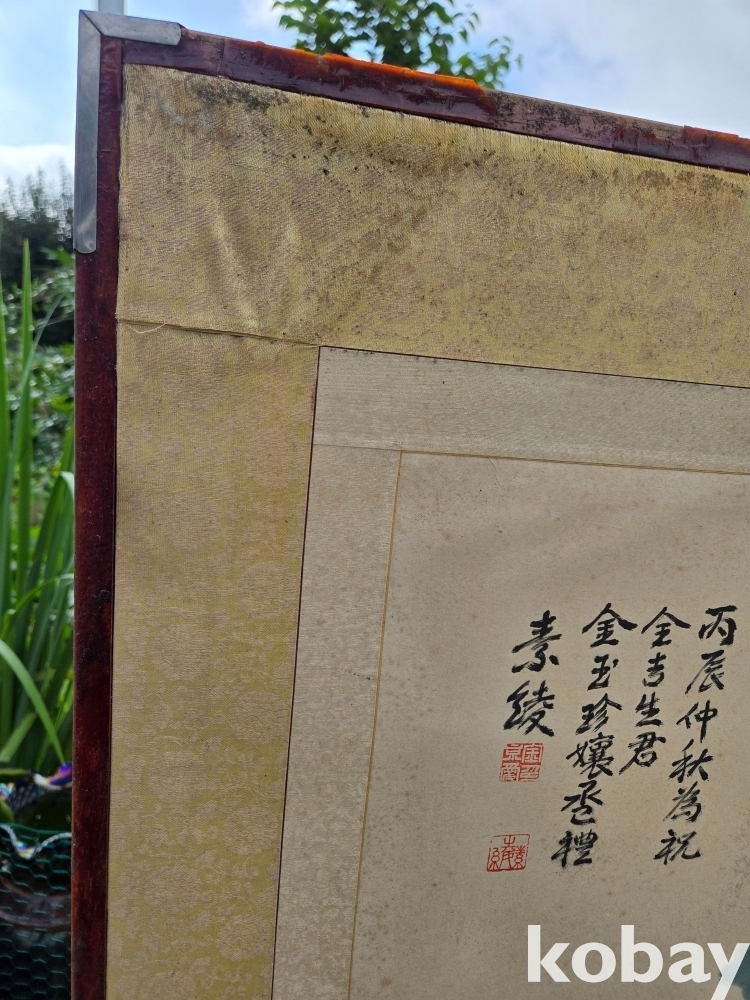 丙辰仲秋為祝
全吉生君
金玉珍孃巹禮
素綾
kobay